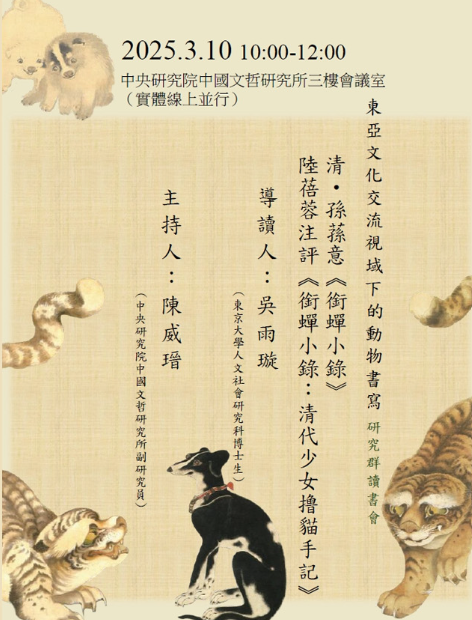 2025.3.10 10:00-12:00
中央研究院中國文哲研究所三樓會議室
（實體線上並行）
東亞文化交流視域下的動物書寫 研究群讀書會
清・孫蓀意《銜蟬小錄》
陸蓓蓉注評《銜蟬小錄：清代少女擼貓手記》
導讀人：吳雨璇
（東京大學人文社會研究科博士生）
主持人：陳威瑨
（中央研究院中國文哲研究所副研究員）